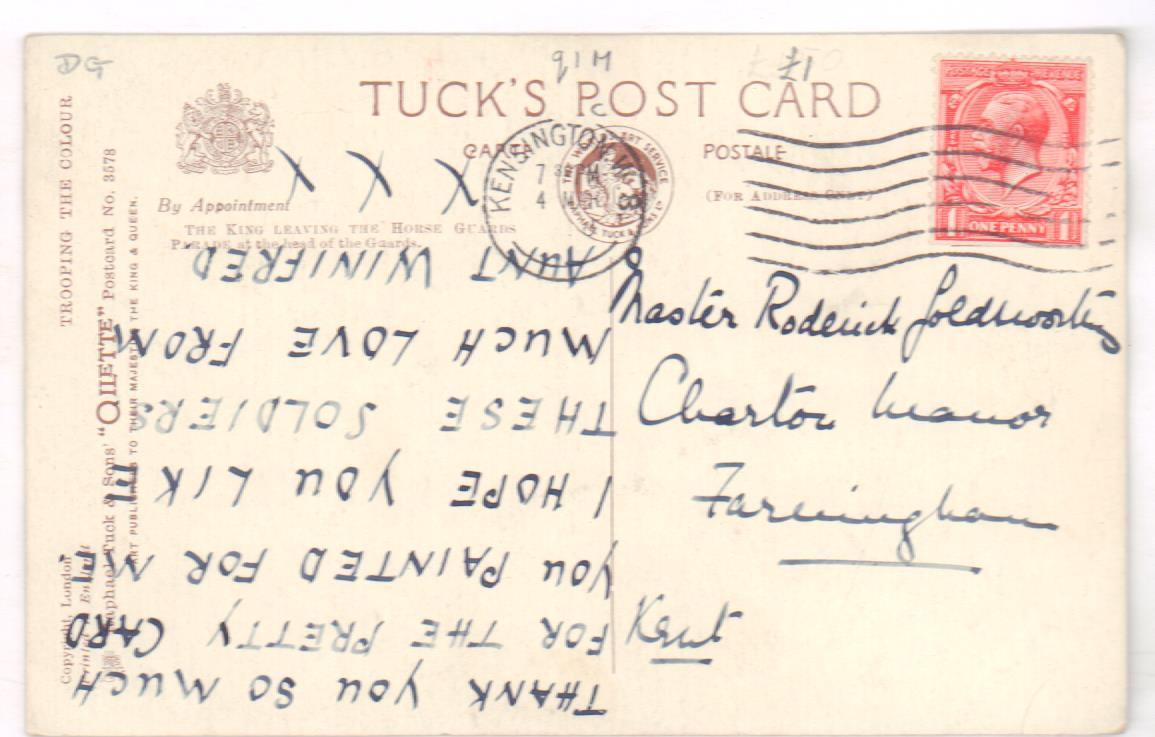 DG
91H
£1
TUCK'S POST CARD
CARTE POSTALE
(FOR ADDRESS ONLY)
By Appointment
THE KING LEAVING THE HORSE GUARDS
PARADE at the head of the Guards.
TROOPING THE COLOUR
Raphael Tuck & Sons' "OILETTE" Postcard No. 3578
ART PUBLISHERS TO THEIR MAJESTIES THE KING & QUEEN.
Copyright, London
Printed in England
KENSINGTON
7 30 PM
4 MCH
POSTAGE REVENUE
1 ONE PENNY 1
THANK YOU SO MUCH
FOR THE PRETTY CARD
YOU PAINTED FOR ME
I HOPE YOU LIKE
THESE SOLDIERS
MUCH LOVE FROM
AUNT WINIFRED
X X X
Master Roderick Goldsworthy
Charton Manor
Farningham
Kent